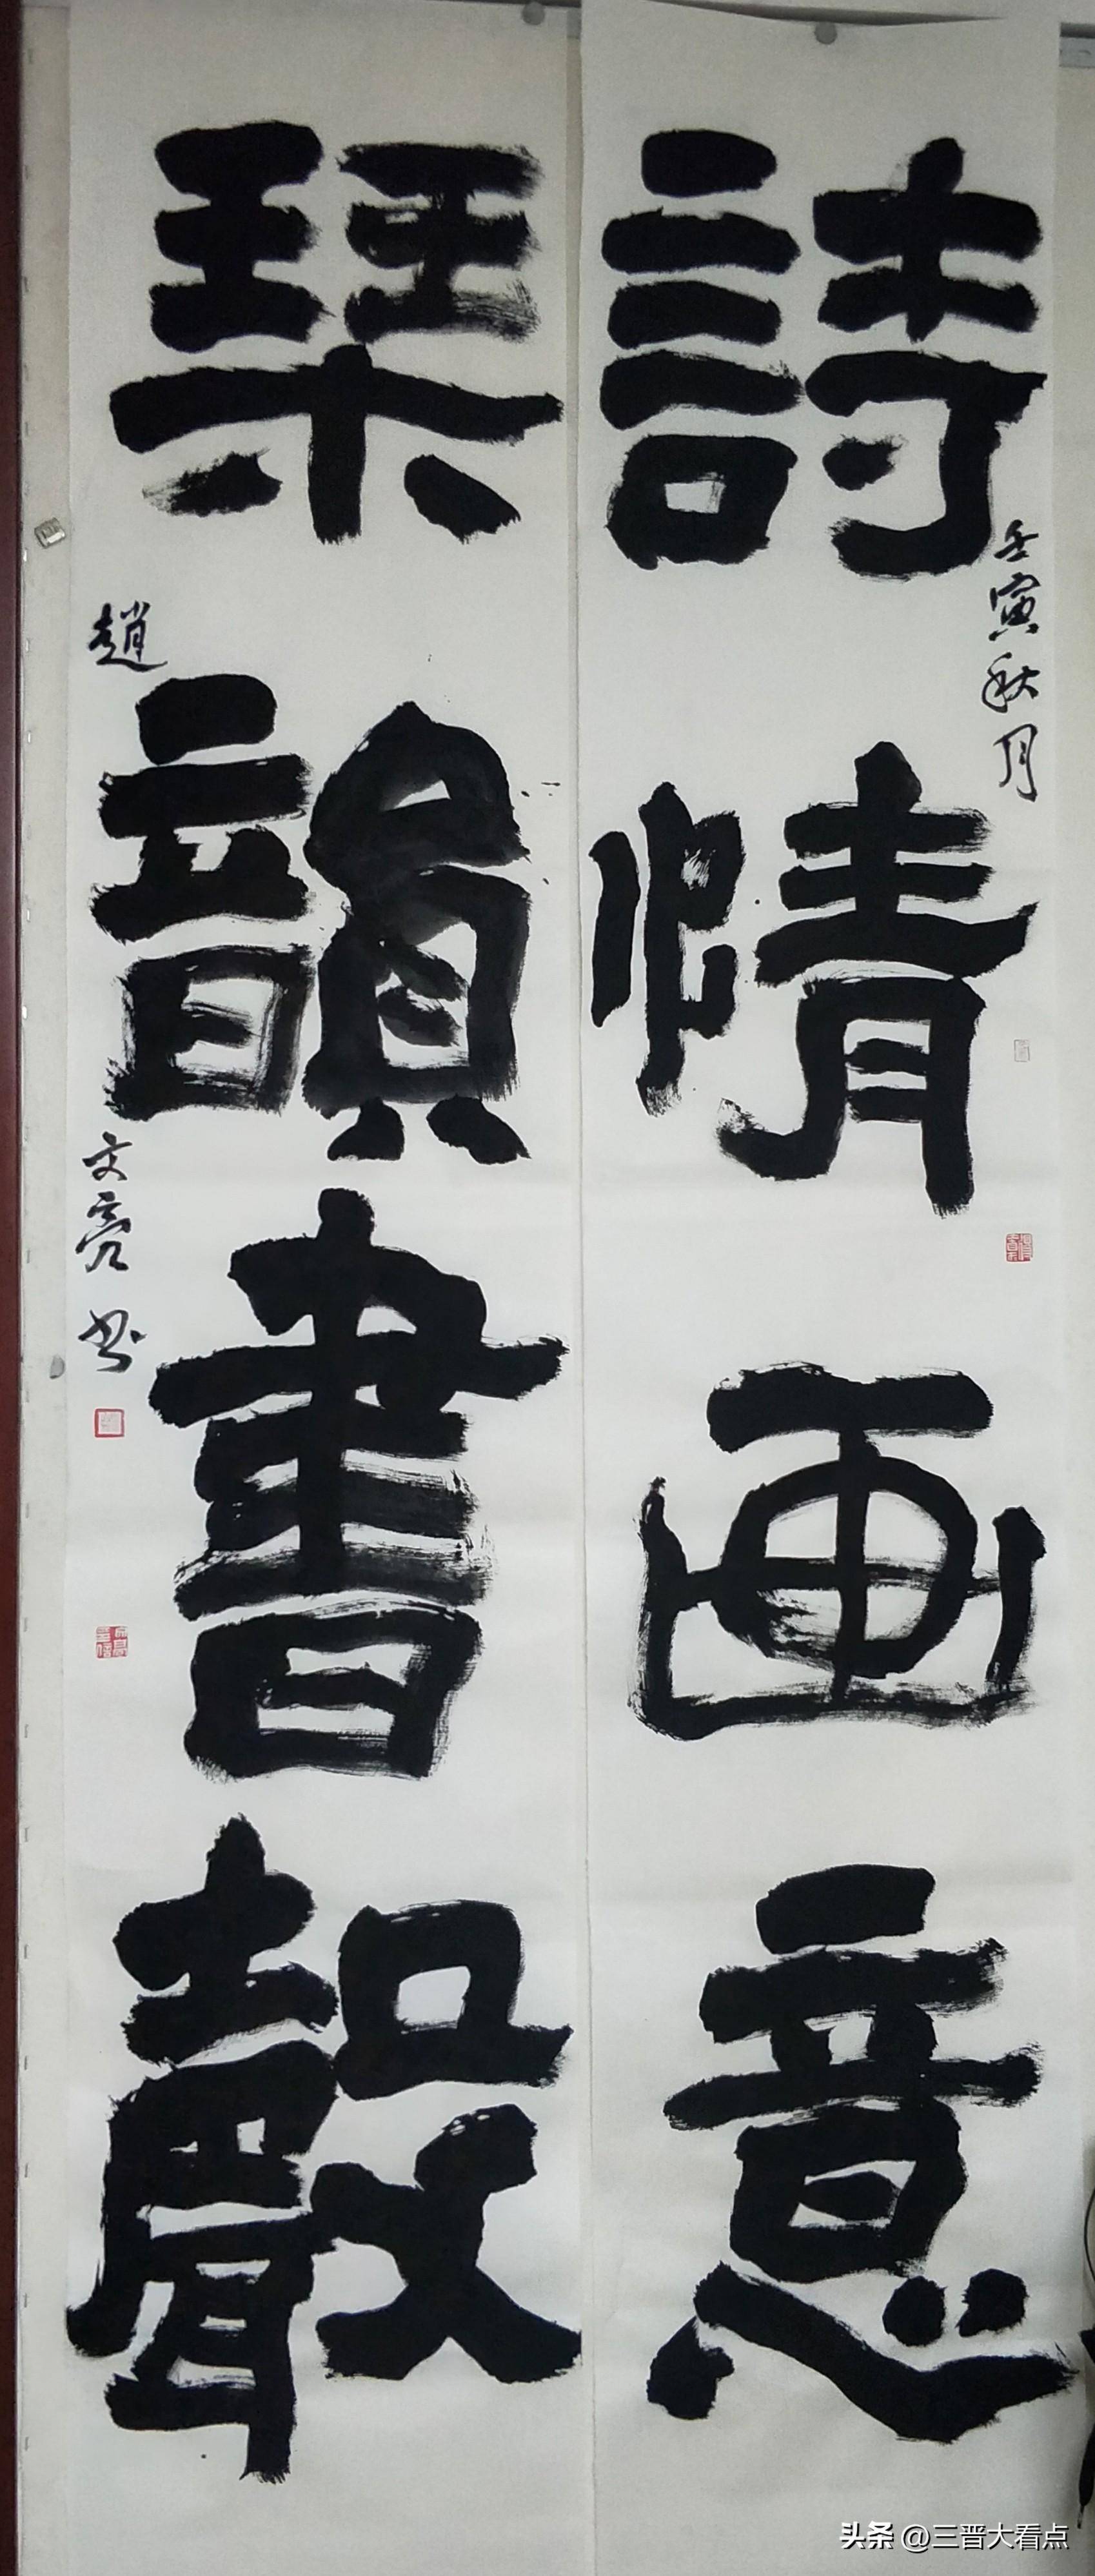 詩情画意
壬寅秋月
琹韻書聲
趙文亮书
头条 @三晋大看点